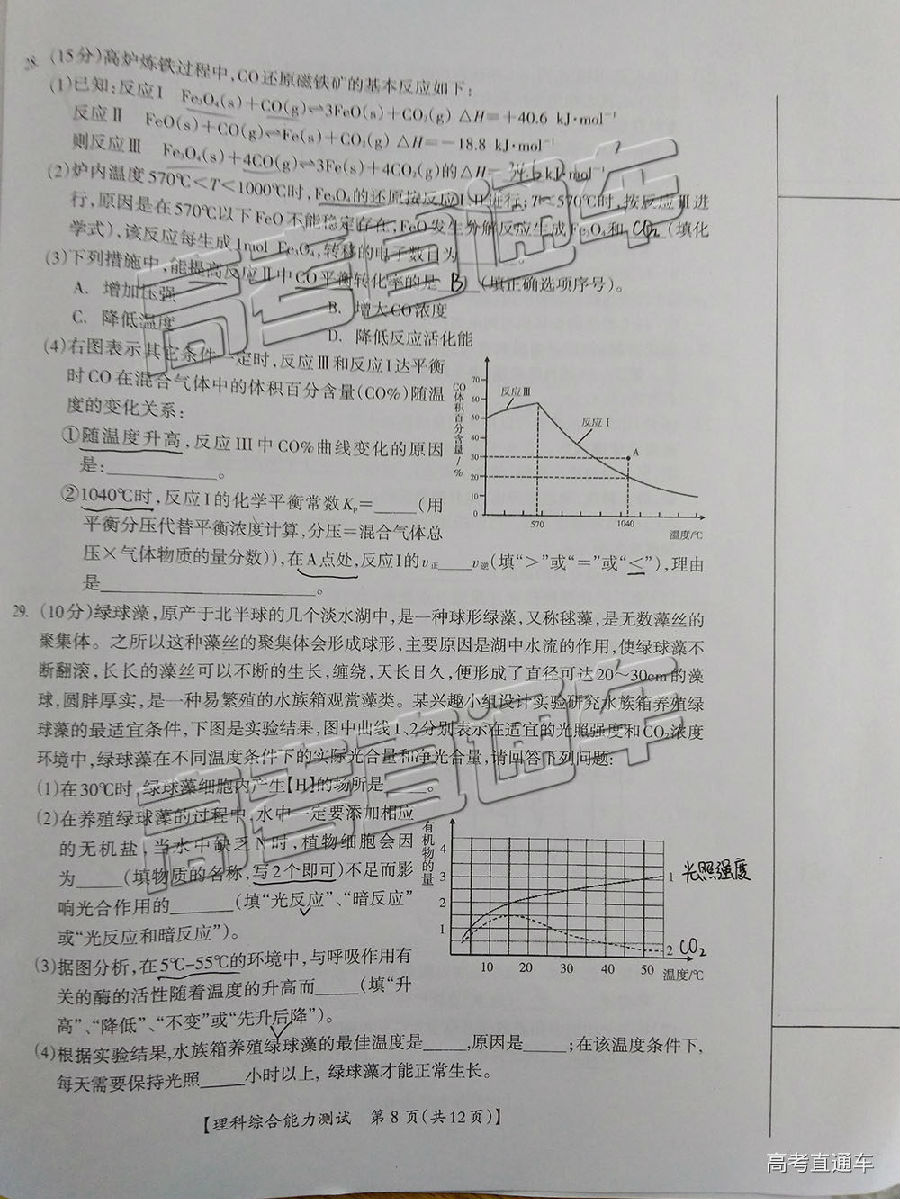 28. (15分)高炉炼铁过程中,CO还原磁铁矿的基本反应如下:
(1)已知:反应Ⅰ Fe₃O₄(s)+CO(g)⇌3FeO(s)+CO₂(g) △H=+40.6 kJ·mol⁻¹
反应Ⅱ FeO(s)+CO(g)⇌Fe(s)+CO₂(g) △H=-18.8 kJ·mol⁻¹
则反应Ⅲ Fe₃O₄(s)+4CO(g)⇌3Fe(s)+4CO₂(g)的△H= kJ·mol⁻¹
(2)炉内温度570℃<T<1000℃时,Fe₃O₄的还原按反应Ⅰ、Ⅱ进行;T<570℃时,按反应Ⅲ进
行,原因是在570℃以下FeO不能稳定存在,FeO发生分解反应生成Fe₃O₄和 CO₂ (填化
学式),该反应每生成1mol Fe₃O₄,转移的电子数目为
(3)下列措施中,能提高反应Ⅱ中CO平衡转化率的是 B (填正确选项序号)。
A. 增加压强
B. 增大CO浓度
C. 降低温度
D. 降低反应活化能
(4)右图表示其它条件一定时,反应Ⅲ和反应Ⅰ达平衡
时CO在混合气体中的体积百分含量(CO%)随温
度的变化关系:
①随温度升高,反应III中CO%曲线变化的原因
是:________。
②1040℃时,反应Ⅰ的化学平衡常数Kₚ=____(用
平衡分压代替平衡浓度计算,分压=混合气体总
压×气体物质的量分数)),在A点处,反应Ⅰ的v正____v逆(填“>”或“=”或“<”),理由
是________________。
CO体积百分含量/%
70
60
50
40
30
20
10
0
反应Ⅲ
反应Ⅰ
A
570
1040
温度/℃
29. (10分)绿球藻,原产于北半球的几个淡水湖中,是一种球形绿藻,又称毬藻,是无数藻丝的
聚集体。之所以这种藻丝的聚集体会形成球形,主要原因是湖中水流的作用,使绿球藻不
断翻滚,长长的藻丝可以不断的生长,缠绕,天长日久,便形成了直径可达20~30cm的藻
球,圆胖厚实,是一种易繁殖的水族箱观赏藻类。某兴趣小组设计实验研究水族箱养殖绿
球藻的最适宜条件,下图是实验结果,图中曲线1、2分别表示在适宜的光照强度和CO₂浓度
环境中,绿球藻在不同温度条件下的实际光合量和净光合量,请回答下列问题:
(1)在30℃时,绿球藻细胞内产生【H】的场所是____。
(2)在养殖绿球藻的过程中,水中一定要添加相应
的无机盐,当水中缺乏N时,植物细胞会因
为____(填物质的名称,写2个即可)不足而影
响光合作用的______(填“光反应”、“暗反应”
或“光反应和暗反应”)。
(3)据图分析,在5℃-55℃的环境中,与呼吸作用有
关的酶的活性随着温度的升高而____(填“升
高”、“降低”、“不变”或“先升后降”)。
有机物的量
4
3
2
1
1 光照强度
2 CO₂
10 20 30 40 50 温度/℃
(4)根据实验结果,水族箱养殖绿球藻的最佳温度是____,原因是____;在该温度条件下,
每天需要保持光照____小时以上,绿球藻才能正常生长。
【理科综合能力测试 第8页(共12页)】
高考直通车
高考直通车
高考直通车